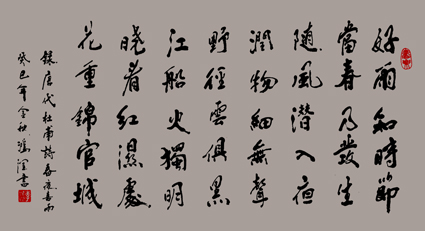 好雨知時節
當春乃發生
隨風潛入夜
潤物細無聲
野徑雲俱黑
江船火獨明
曉看紅濕處
花重錦官城
錄唐代杜甫詩春夜喜雨
癸巳年金秋書